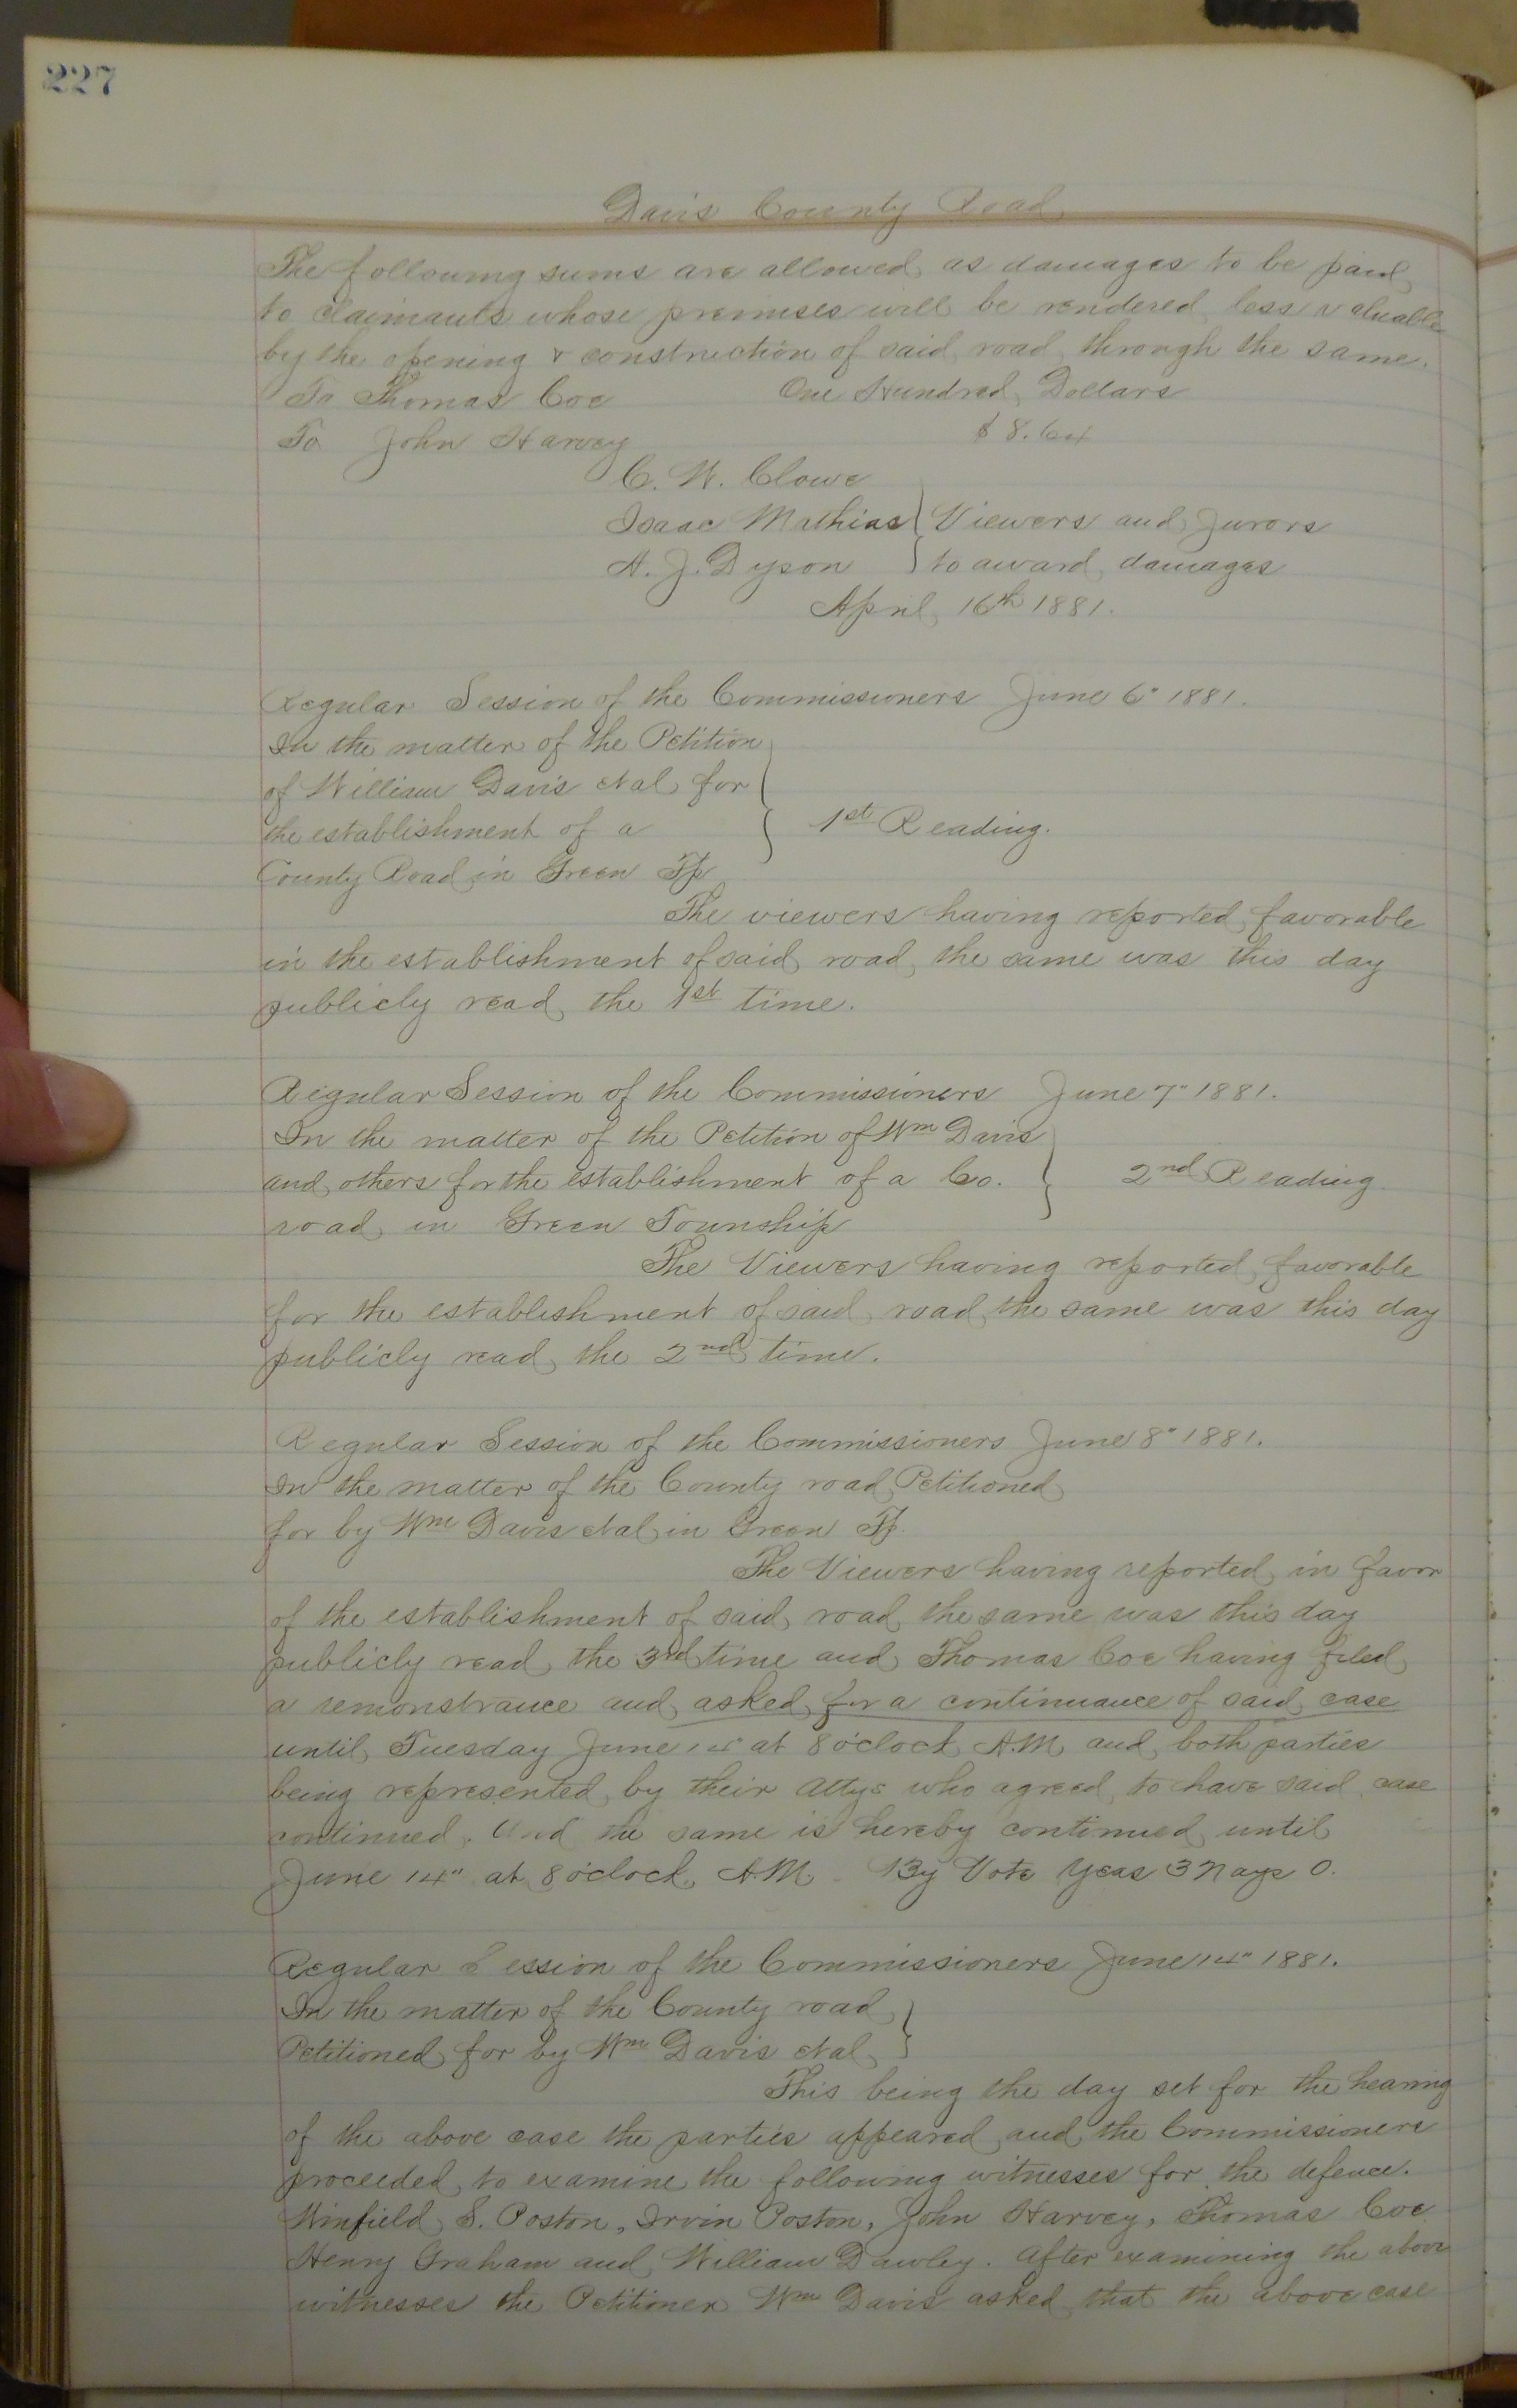 227
Davis County Road
The following sums are allowed as damages to be paid
to claimants whose premises will be rendered less valuable
by the opening & construction of said road through the same.
To Thomas Coe One Hundred Dollars
To John Harvey $8.64
C. W. Clowe
Isaac Mathias } Viewers and Jurors
A. J. Dyson } to award damages
April 16th 1881.
Regular Session of the Commissioners June 6" 1881.
In the matter of the Petition
of William Davis etal for
the establishment of a } 1st Reading.
County Road in Green Tp
The viewers having reported favorable
in the establishment of said road, the same was this day
publicly read the 1st time.
Regular Session of the Commissioners June 7" 1881.
In the matter of the Petition of Wm Davis
and others for the establishment of a Co. } 2nd Reading.
road in Green Township
The Viewers having reported favorable
for the establishment of said road the same was this day
publicly read the 2nd time.
Regular Session of the Commissioners June 8" 1881.
In the matter of the County road Petitioned
for by Wm Davis etal in Green Tp.
The Viewers having reported in favor
of the establishment of said road the same was this day
publicly read the 3rd time and Thomas Coe having filed
a remonstrance and asked for a continuance of said case
until Tuesday June 14" at 8 o'clock A.M. and both parties
being represented by their Attys who agreed to have said case
continued. And the same is hereby continued until
June 14" at 8 o'clock A.M. By Vote Yeas 3 Nays 0.
Regular Session of the Commissioners June 14" 1881.
In the matter of the County road }
Petitioned for by Wm Davis etal }
This being the day set for the hearing
of the above case the parties appeared and the Commissioners
proceeded to examine the following witnesses for the defence.
Winfield S. Poston, Irvin Poston, John Harvey, Thomas Coe
Henry Graham and William Dawley. After examining the above
witnesses the Petitioner Wm Davis asked that the above case